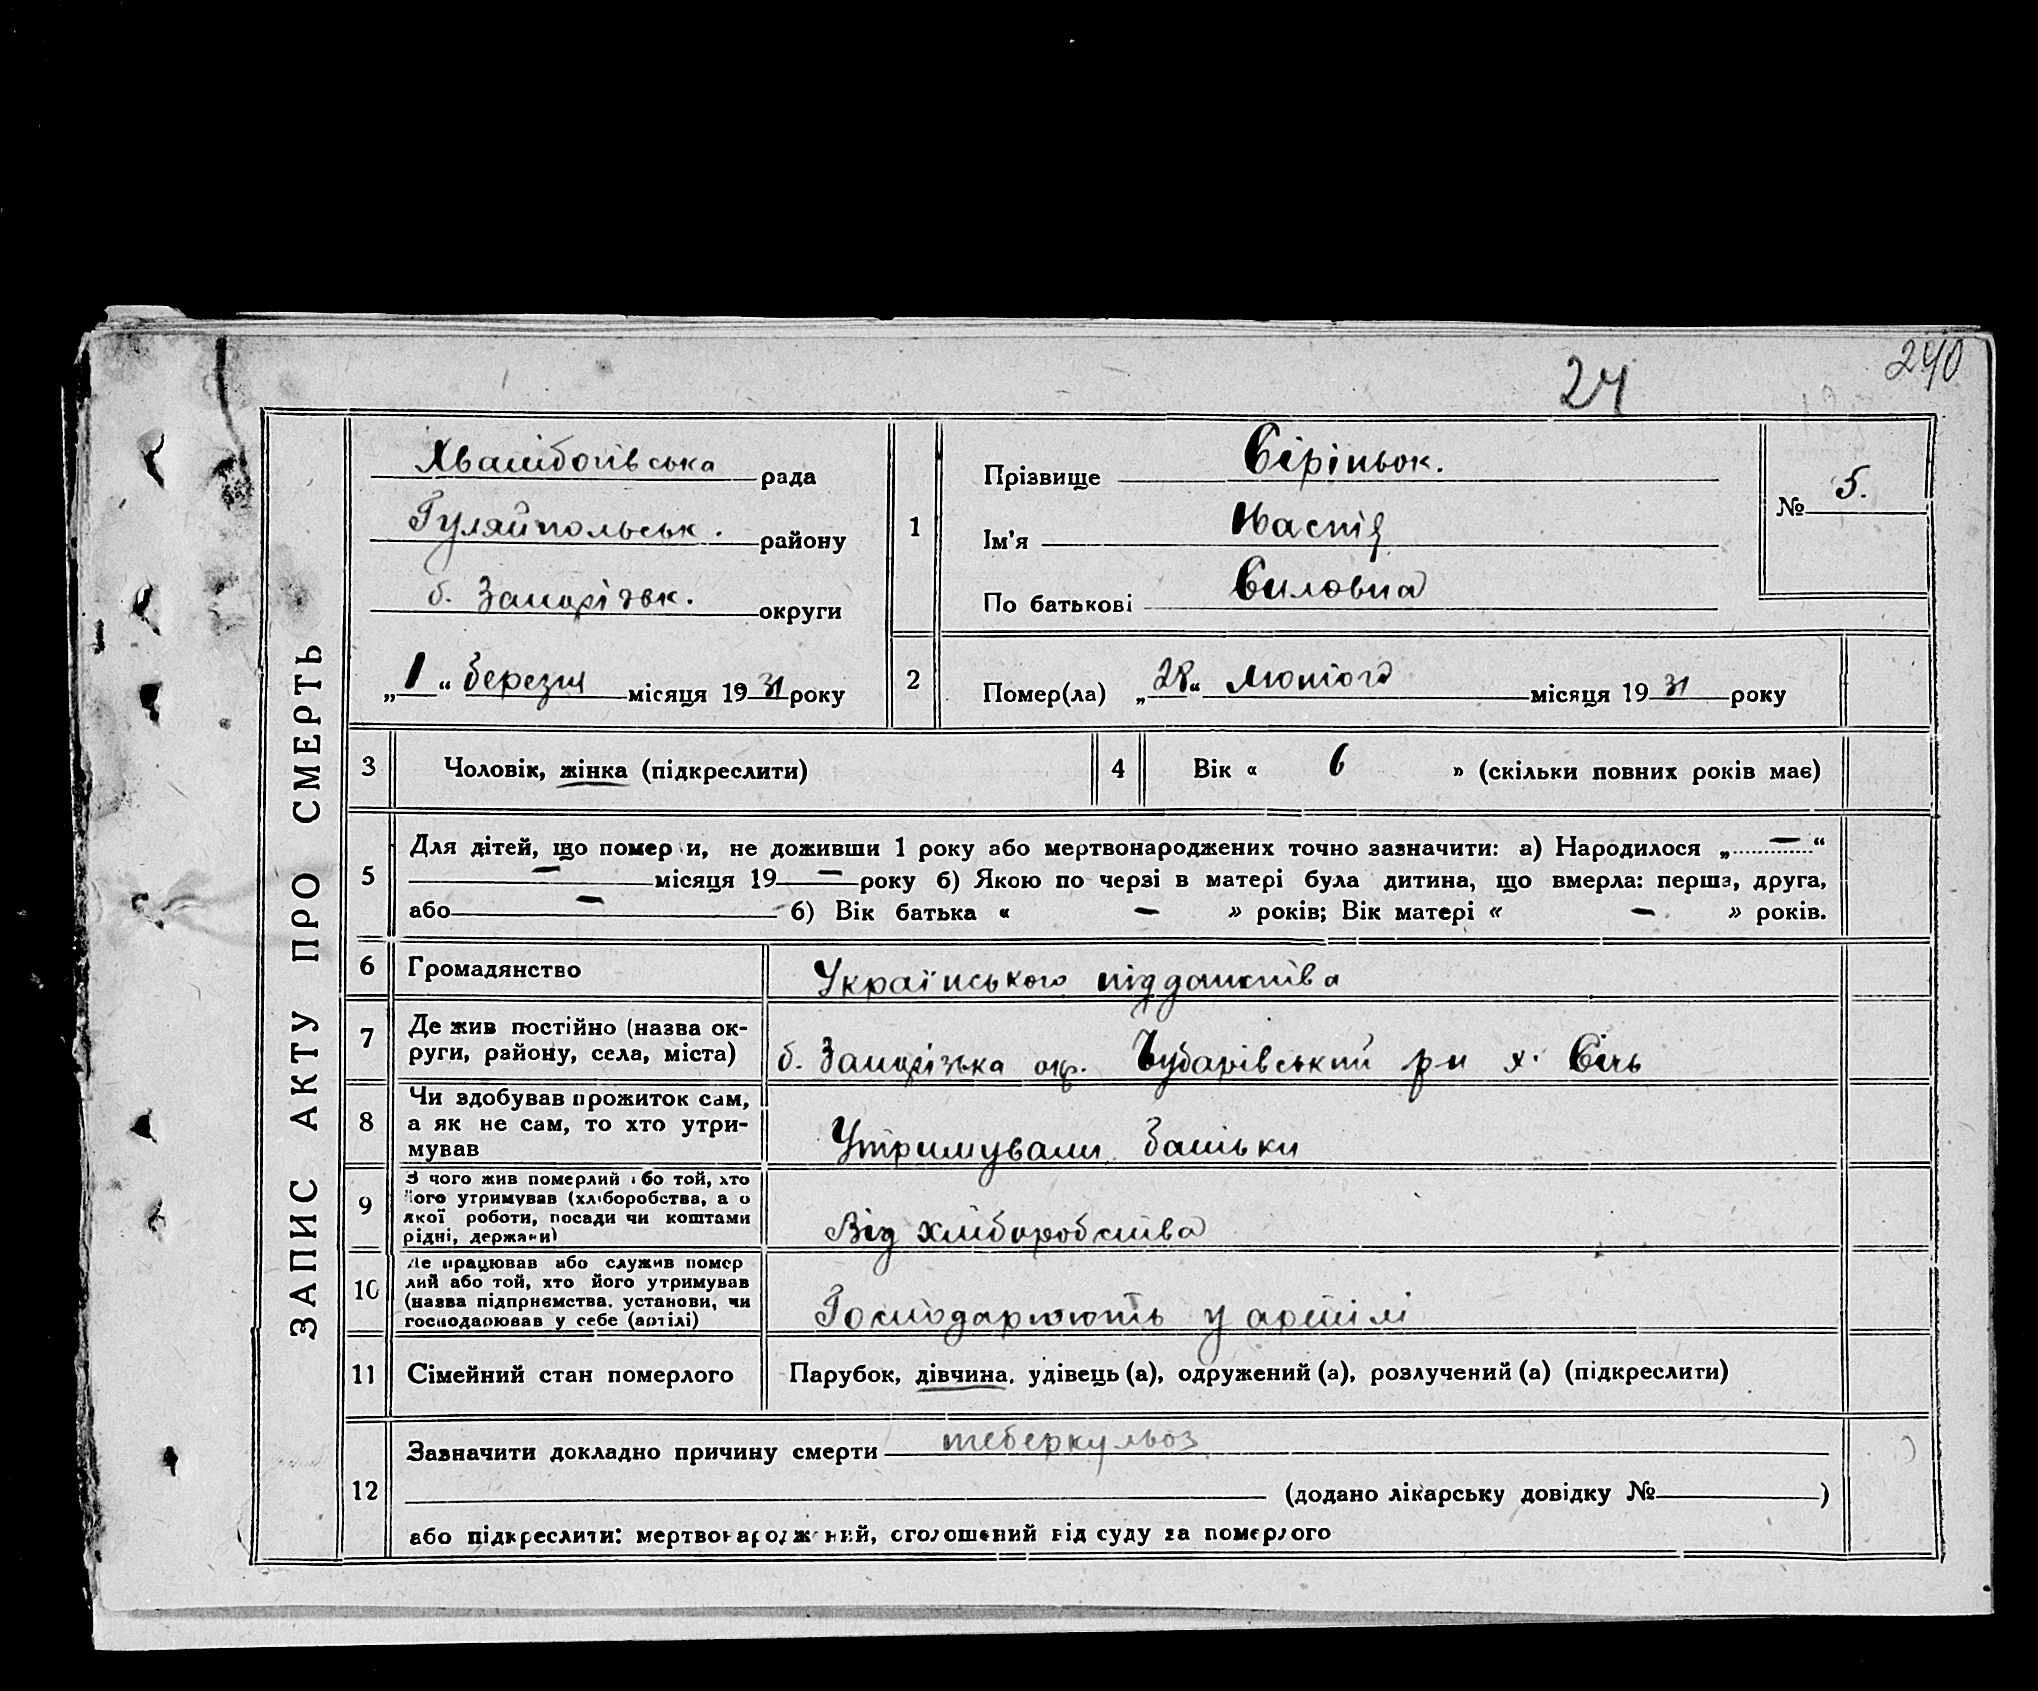 24
240
ЗАПИС АКТУ ПРО СМЕРТЬ
рада
Гуляйпольськ. району
б. Запорізьк. округи
„1“ березня місяця 1931 року
1
Прізвище Сіріньок.
Ім'я Настя
По батькові Силовна
№ 5.
2
Помер(ла) „28“ лютого місяця 1931 року
3
Чоловік, жінка (підкреслити)
4
Вік « 6 » (скільки повних років має)
5
Для дітей, що померли, не доживши 1 року або мертвонароджених точно зазначити: а) Народилося „—“
— місяця 19— року б) Якою по черзі в матері була дитина, що вмерла: перша, друга,
або — б) Вік батька « — » років; Вік матері « — » років.
6
Громадянство
Українського підданства
7
Де жив постійно (назва ок-
руги, району, села, міста)
б. Запорізька окр. Чубарівський рн х. Січь
8
Чи здобував прожиток сам,
а як не сам, то хто утри-
мував
Утримували батьки
9
З чого жив померлий або той, хто
його утримував (хліборобства, а о
якої роботи, посади чи коштами
рідні, держави)
Від хліборобства
10
Де працював або служив помер
лий або той, хто його утримував
(назва підприємства, установи, чи
господарював у себе (артілі)
Господарюють у артілі
11
Сімейний стан померлого
Парубок, дівчина, удівець(а), одружений(а), розлучений(а) (підкреслити)
12
Зазначити докладно причину смерти теберкульоз
(додано лікарську довідку № )
або підкреслити: мертвонароджений, оголошений від суду за померлого